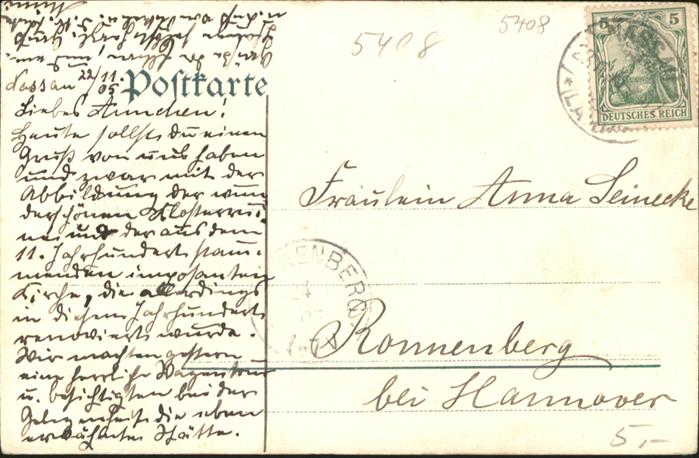 5408
5408
5 5
DEUTSCHES REICH
Postkarte
Nassau 22/11.05
Liebes Annchen!
Heute sollst du einen
Gruß von uns haben
und zwar mit der
Abbildung der wun
derschönen Klosterrui
ne und der aus dem
11. Jahrhundert stam
menden imposanten
Kirche, die allerdings
in diesem Jahrhundert
renoviert wurde.
Wir machten gestern
eine herrliche Wagentour
u. besichtigten bei der
Gelegenheit die eben
erwähnte Stätte.
Fräulein Anna Seinecke
NENBERG
Ronnenberg
bei Hannover
5,-